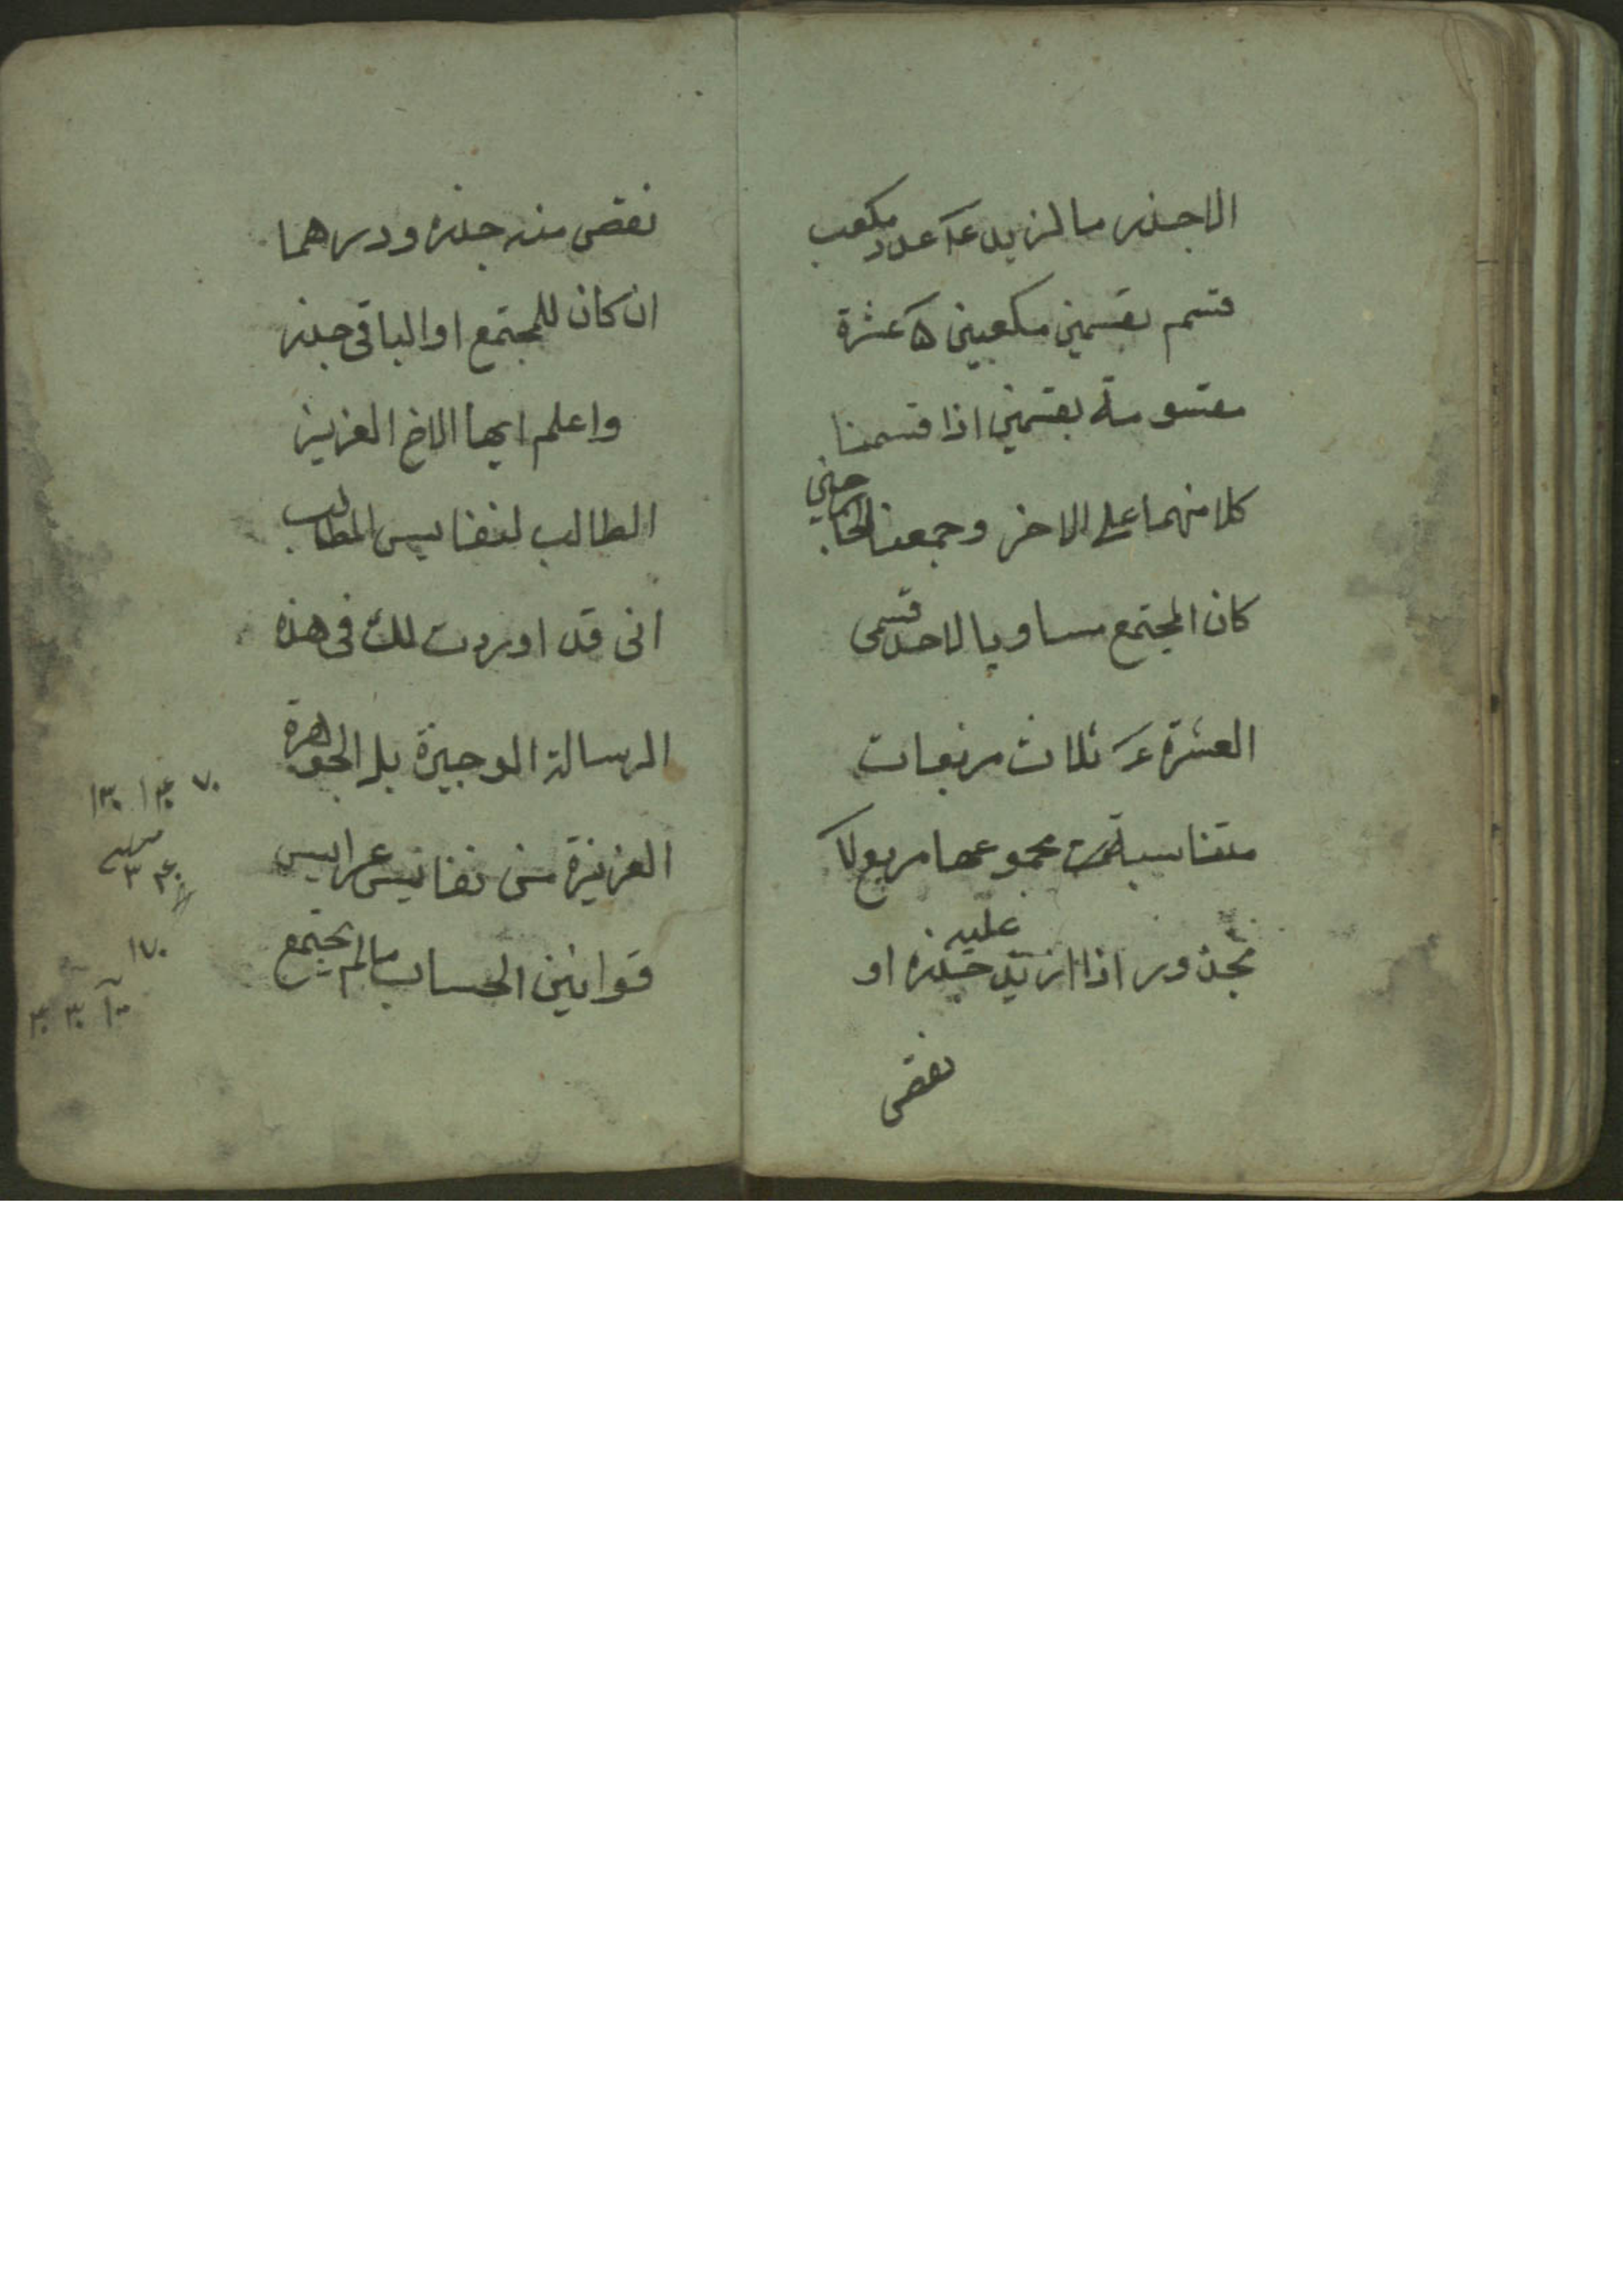 الاجذر مالزيد عدد مكعب
قسم بقسمين مكعبين ۵ عشرة
مقسومة بقسمين اذا قسمنا
كلا منهما على الاخر وجمعنا الخارجين
كان المجتمع مساويا لاحد قسمى
العشرة ثلاث مربعات
متناسبة مجموعها مربع
مجذور اذا ازيد عليه جذره او
نقص
نقص منه جذره ودرهما
ان كان للمجتمع او الباقى جذر
واعلم ايها الاخ العزيز
الطالب لنفايس المطالب
انى قد اوردت لك فى هذه
الرسالة الوجيزة بل الجوهرة
العزيزة من نفايس عرايس
قوانين الحساب مالم يجتمع
۱۷۰